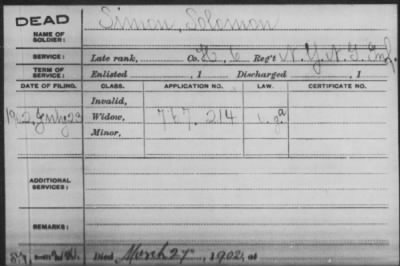 DEAD
NAME OF SOLDIER: Simon, Solomon
SERVICE: Late rank, Co. K, 6 Reg't N. Y. N. G. Inf.
TERM OF SERVICE: Enlisted , 1 Discharged , 1
DATE OF FILING. CLASS. APPLICATION NO. LAW. CERTIFICATE NO.
Invalid,
1902, July 23 Widow, 767.214
Minor,
ADDITIONAL SERVICES:
REMARKS:
Died March 27, 1902, at